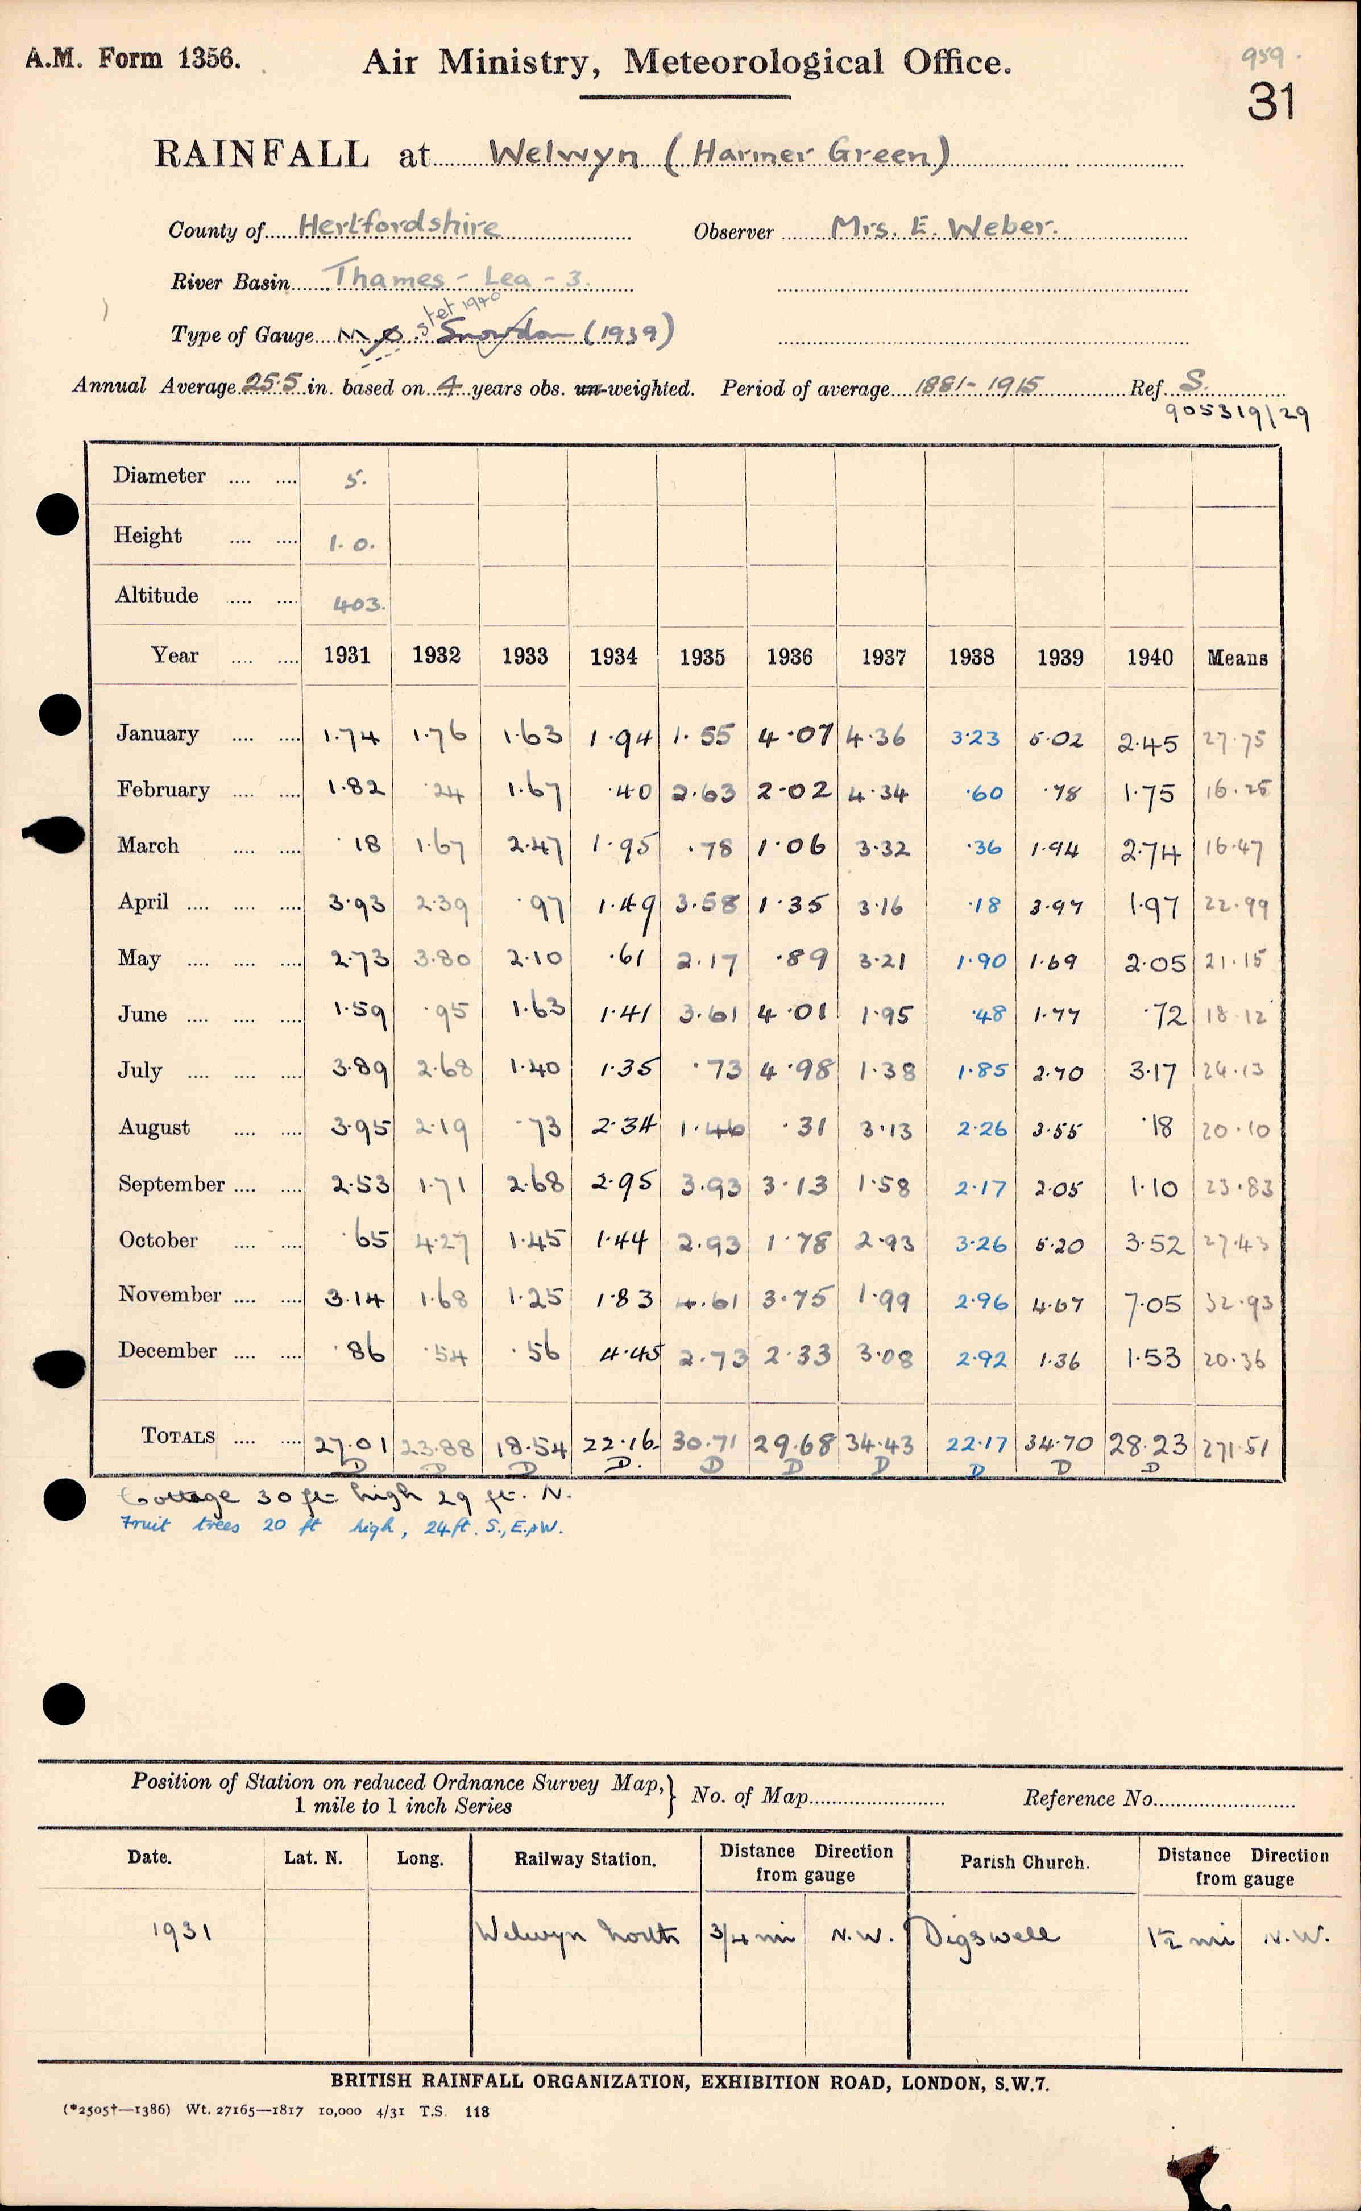 A.M. Form 1356.
Air Ministry, Meteorological Office.
959.
31
RAINFALL at Welwyn (Harmer Green)
County of Hertfordshire Observer Mrs. E. Weber.
River Basin Thames - Lea - 3.
stet 1940
Type of Gauge M.O. Snowdon (1939)
Annual Average 25.5 in. based on 4 years obs. un-weighted. Period of average 1881-1915 Ref. S.
905319/29
Diameter 5.
Height 1.0.
Altitude 403.
Year 1931 1932 1933 1934 1935 1936 1937 1938 1939 1940 Means
January 1.74 1.76 1.63 1.94 1.55 4.07 4.36 3.23 5.02 2.45 27.75
February 1.82 .24 1.67 .40 2.63 2.02 4.34 .60 .78 1.75 16.25
March .18 1.67 2.47 1.95 .78 1.06 3.32 .36 1.94 2.74 16.47
April 3.93 2.39 .97 1.49 3.58 1.35 3.16 .18 3.97 1.97 22.99
May 2.73 3.80 2.10 .61 2.17 .89 3.21 1.90 1.69 2.05 21.15
June 1.59 .95 1.63 1.41 3.61 4.01 1.95 .48 1.77 .72 18.12
July 3.89 2.68 1.40 1.35 .73 4.98 1.38 1.85 2.70 3.17 24.13
August 3.95 2.19 .73 2.34 1.46 .31 3.13 2.26 3.55 .18 20.10
September 2.53 1.71 2.68 2.95 3.93 3.13 1.58 2.17 2.05 1.10 23.83
October .65 4.27 1.45 1.44 2.93 1.78 2.93 3.26 5.20 3.52 27.43
November 3.14 1.68 1.25 1.83 4.61 3.75 1.99 2.96 4.67 7.05 32.93
December .86 .54 .56 4.45 2.73 2.33 3.08 2.92 1.36 1.53 20.36
TOTALS 27.01 23.88 18.54 22.16 30.71 29.68 34.43 22.17 34.70 28.23 271.51
D D D D. D D D D D D
Cottage 30 ft high 29 ft. N.
Fruit trees 20 ft high, 24ft. S., E. & W.
Position of Station on reduced Ordnance Survey Map,} No. of Map Reference No.
1 mile to 1 inch Series
Date. Lat. N. Long. Railway Station. Distance Direction from gauge Parish Church. Distance Direction from gauge
1931 Welwyn North 3/4 mi N.W. Digswell 1½ mi N.W.
BRITISH RAINFALL ORGANIZATION, EXHIBITION ROAD, LONDON, S.W.7.
(*2505†—1386) Wt. 27165—1817 10,000 4/31 T.S. 118